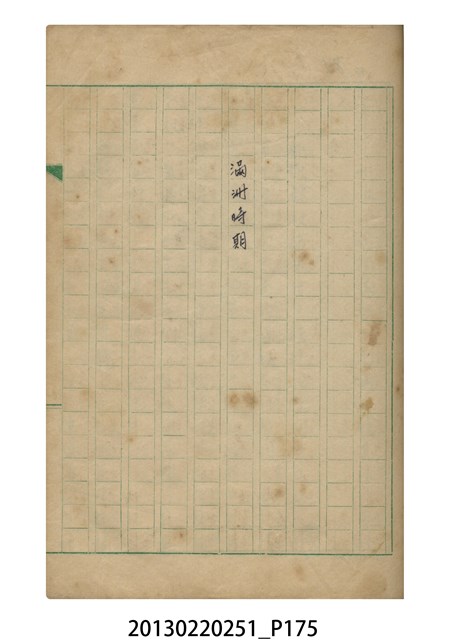 滿洲時期
20130220251_P175